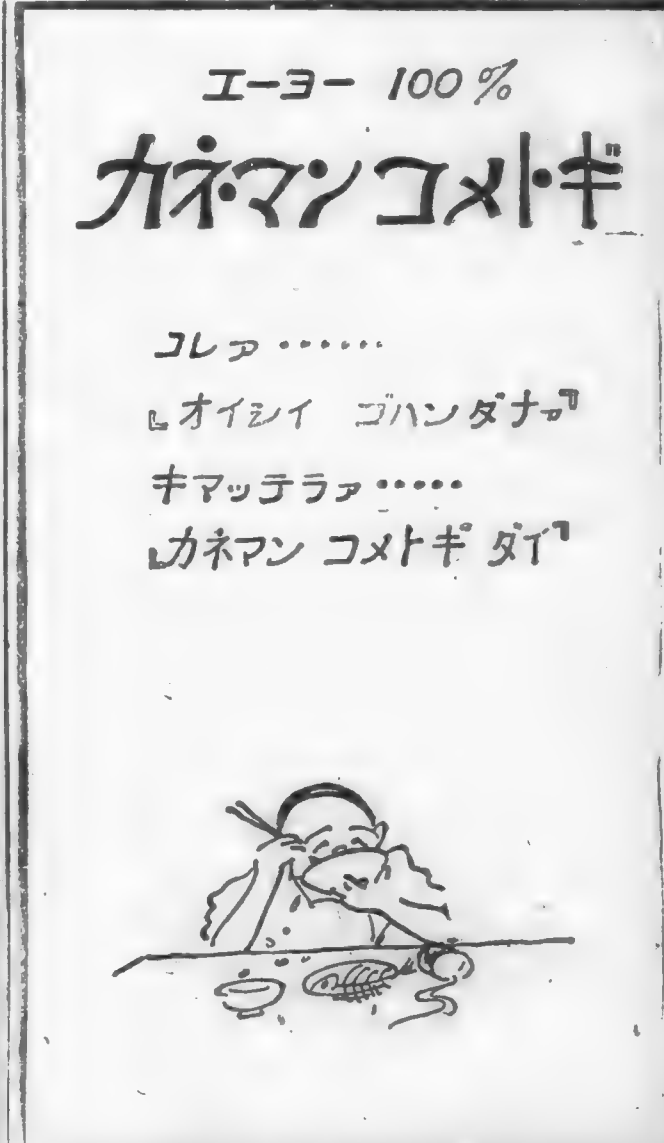 エーヨー 100%
カネマンコメトギ
コレァ……
『オイシイ ゴハンダナァ』
キマッテラァ……
『カネマン コメトギ ダイ』